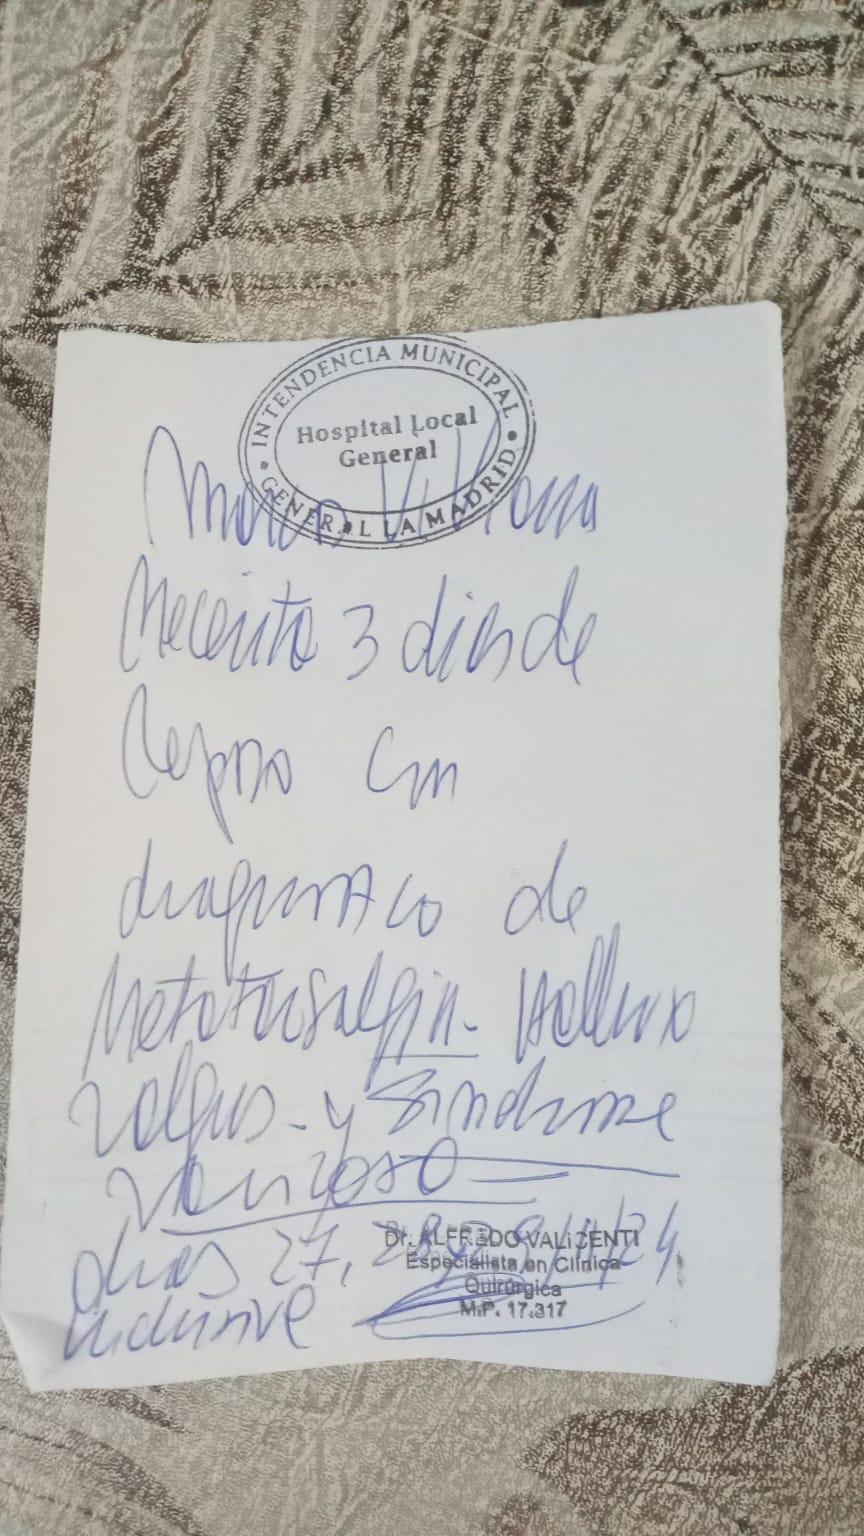 INTENDENCIA MUNICIPAL
Hospital Local
General
GENERAL LA MADRID
Necesita 3 dias de
reposo con
diagnostico de
Metatarsalgia - Hallux
Valgus - y Sindrome
Varicoso
dias 27, 28, 29/ /24
inclusive
Dr. ALFREDO VALICENTI
Especialista en Clínica
Quirúrgica
M.P. 17.317